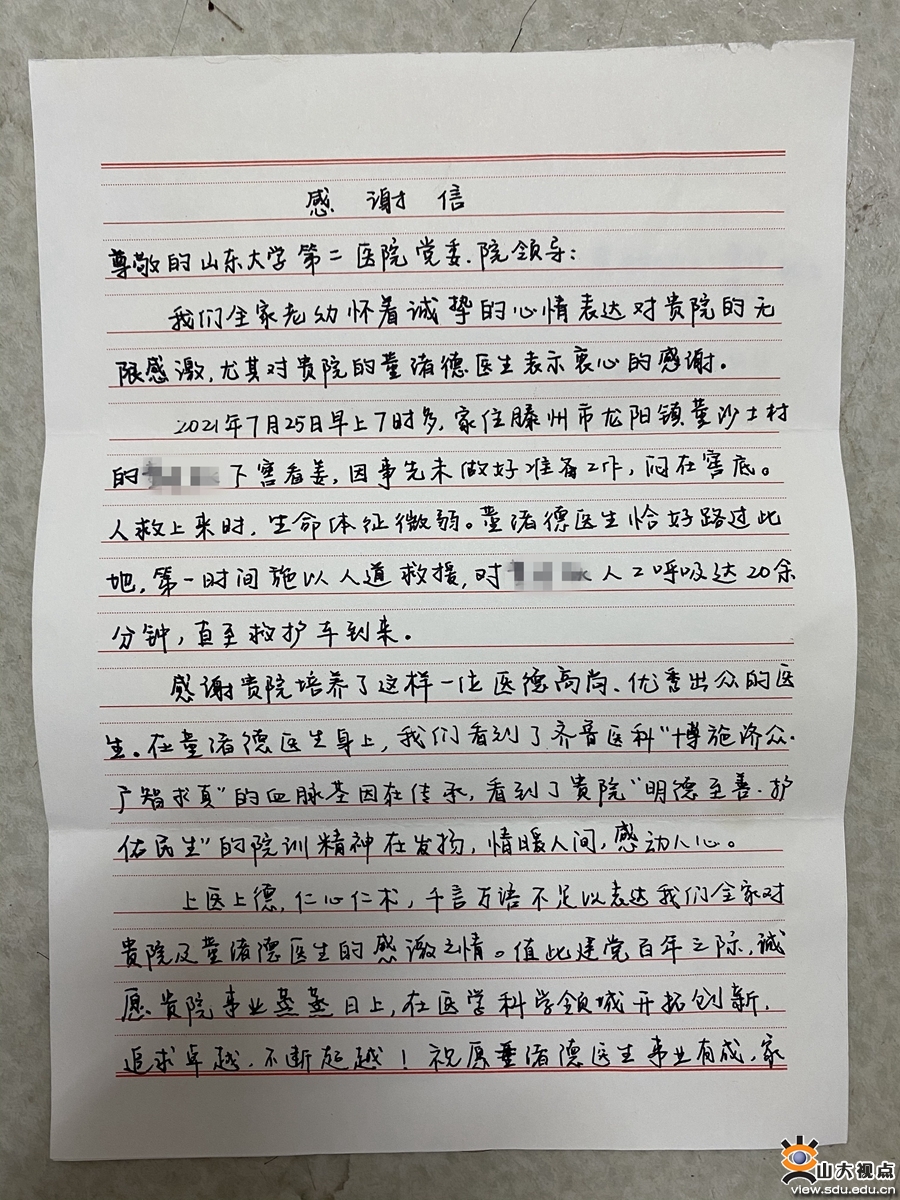 感谢信
尊敬的山东大学第二医院党委、院领导:
我们全家老幼怀着诚挚的心情表达对贵院的无
限感激,尤其对贵院的董渚德医生表示衷心的感谢。
2021年7月25日早上7时多,家住滕州市龙阳镇董沙土村
的 下窖看姜,因事先未做好准备工作,闷在窖底。
人救上来时,生命体征微弱。董渚德医生恰好路过此
地,第一时间施以人道救援,对 人工呼吸达20余
分钟,直至救护车到来。
感谢贵院培养了这样一位医德高尚、优秀出众的医
生。在董渚德医生身上,我们看到了齐鲁医科“博施济众·
广智求真”的血脉基因在传承,看到了贵院“明德至善·护
佑民生”的院训精神在发扬,情暖人间,感动人心。
上医上德,仁心仁术,千言万语不足以表达我们全家对
贵院及董渚德医生的感激之情。值此建党百年之际,诚
愿贵院事业蒸蒸日上,在医学科学领域开拓创新,
追求卓越,不断超越!祝愿董渚德医生事业有成,家
山大视点
view.sdu.edu.cn